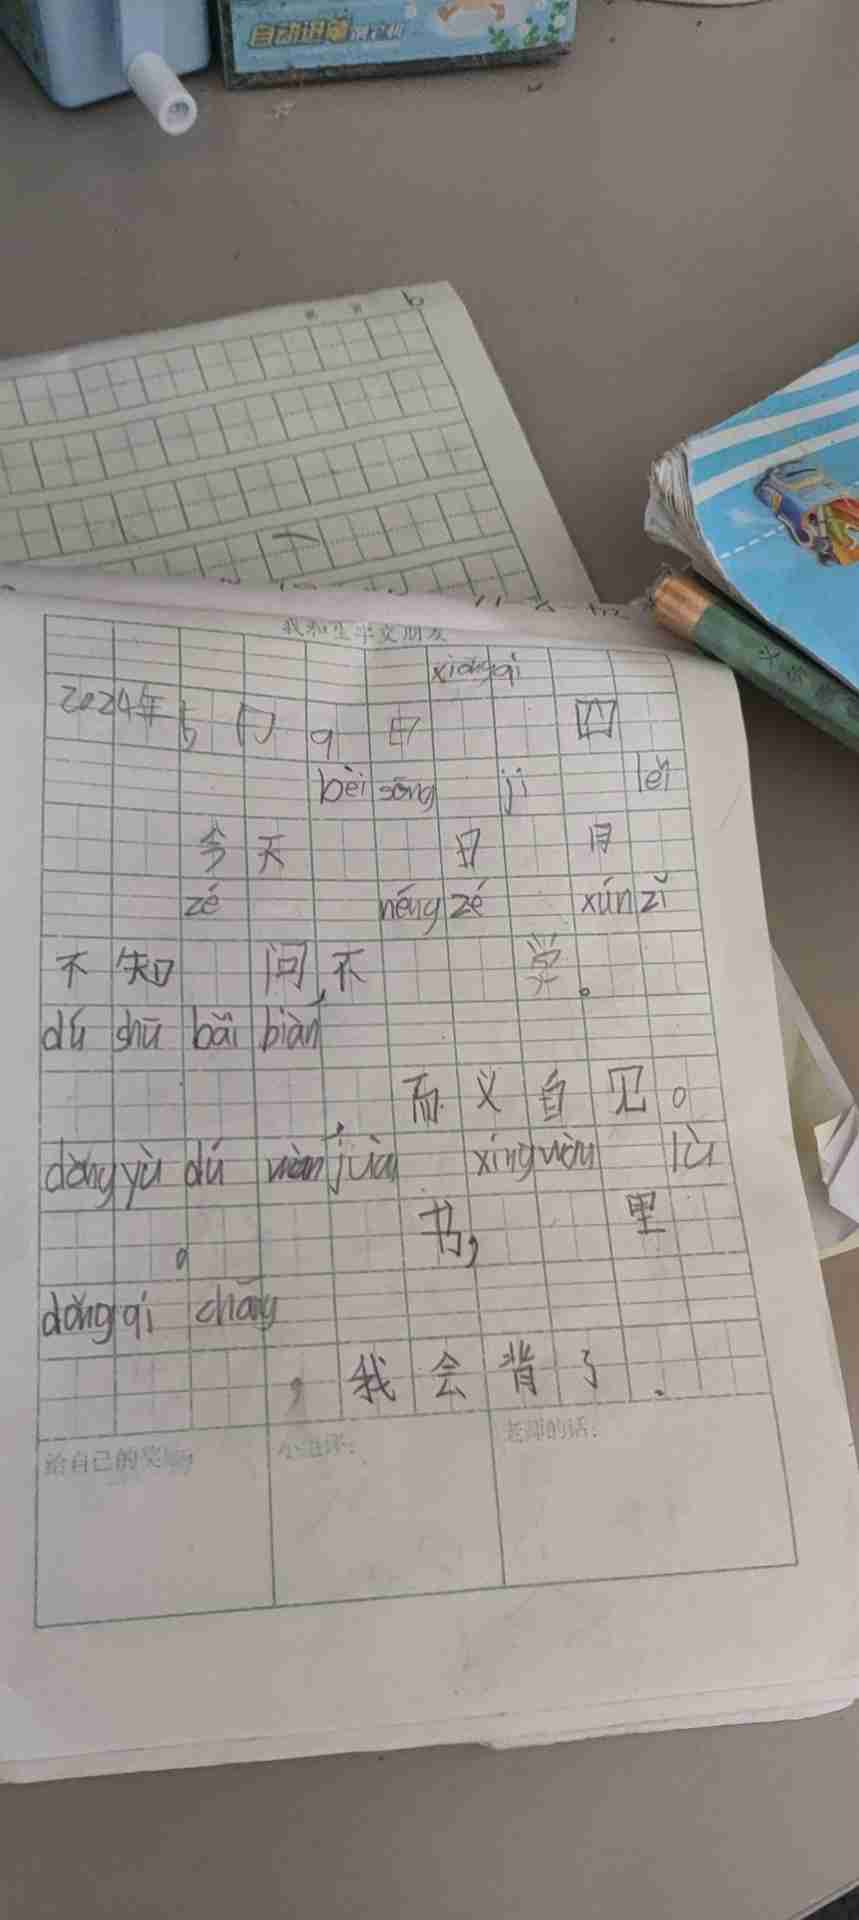 自动进笔
我和生字交朋友
xiōngqi
2024年5月9日 四
bèi sōng jī lěi
今天 日 月
zé néng zé xún zǐ
不知 问,不 学。
dú shū bǎi biàn
而义自见。
dòng yù dú wàn juàn xíng wàn lù
。 书, 里
dōng qí chāng
,我会背了.
给自己的奖励
老师的话: